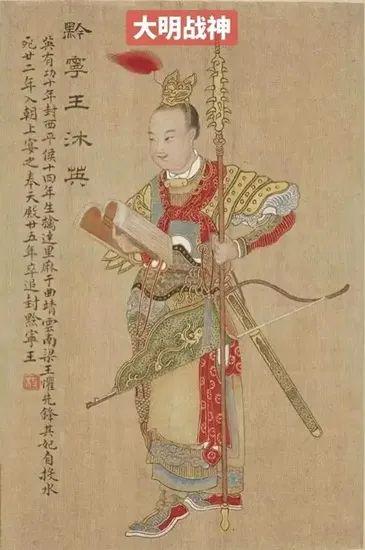 大明战神
黔寧王沐英
英有功十年封西平侯十四年生擒達里麻于曲靖雲南梁王懼先其妃自投水
死廿二年入朝上宴之奉天殿廿五年卒追封黔寧王